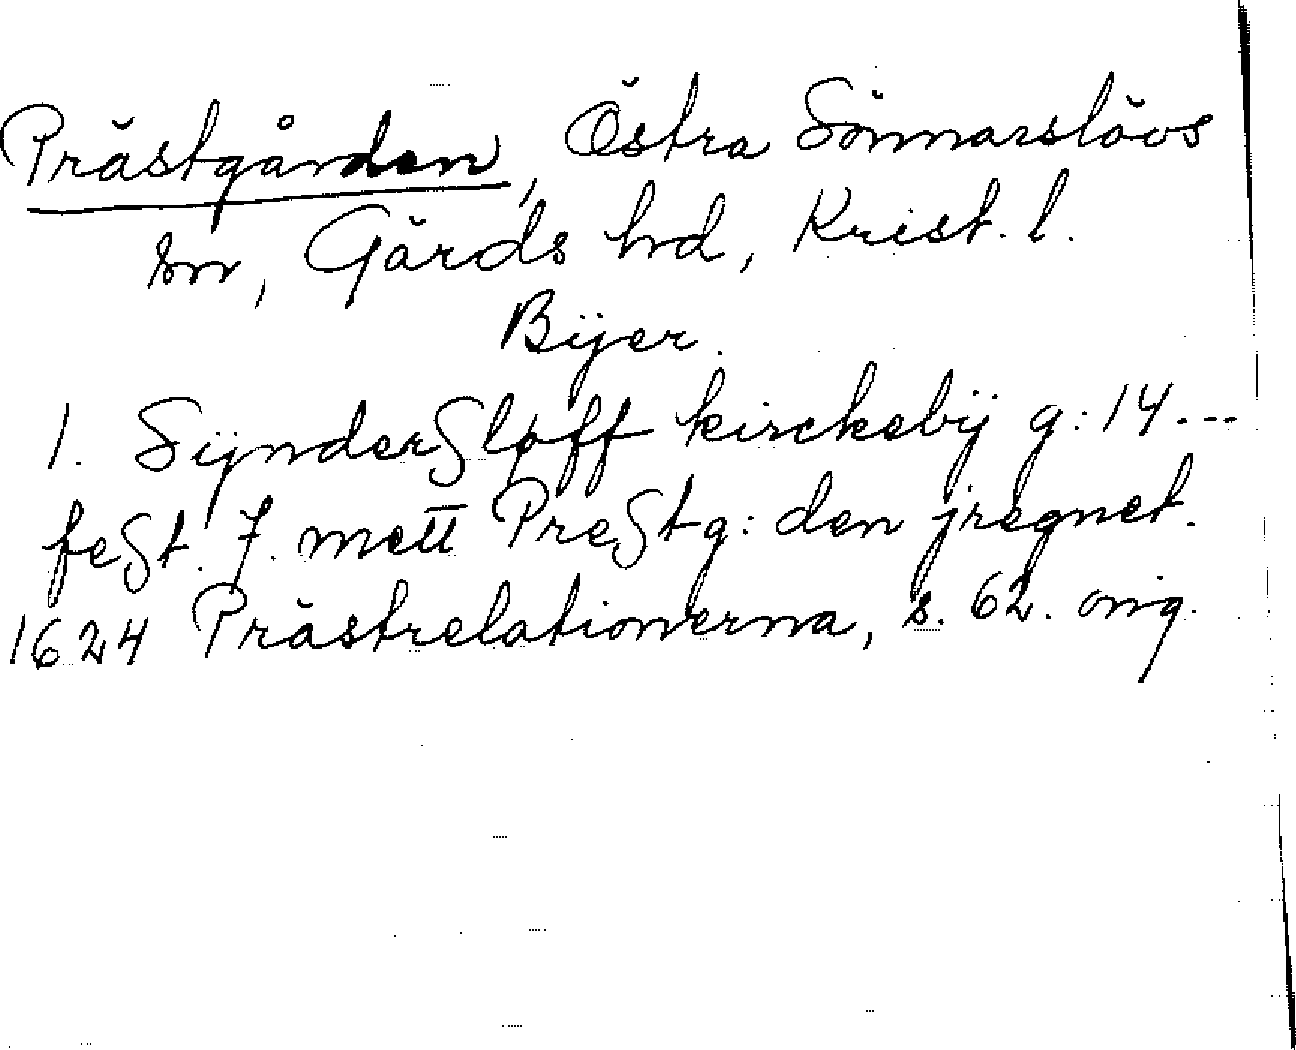 Prästgården, Östra Sönnarslövs
sn, Gärds hd, Krist. l.
Bÿer.
1. Sÿnderßløff kirckebÿ g: 14 ---
feßt. 7. mett Preßtg: den jregnet.
1624 Prästrelationerna, s. 62. orig.